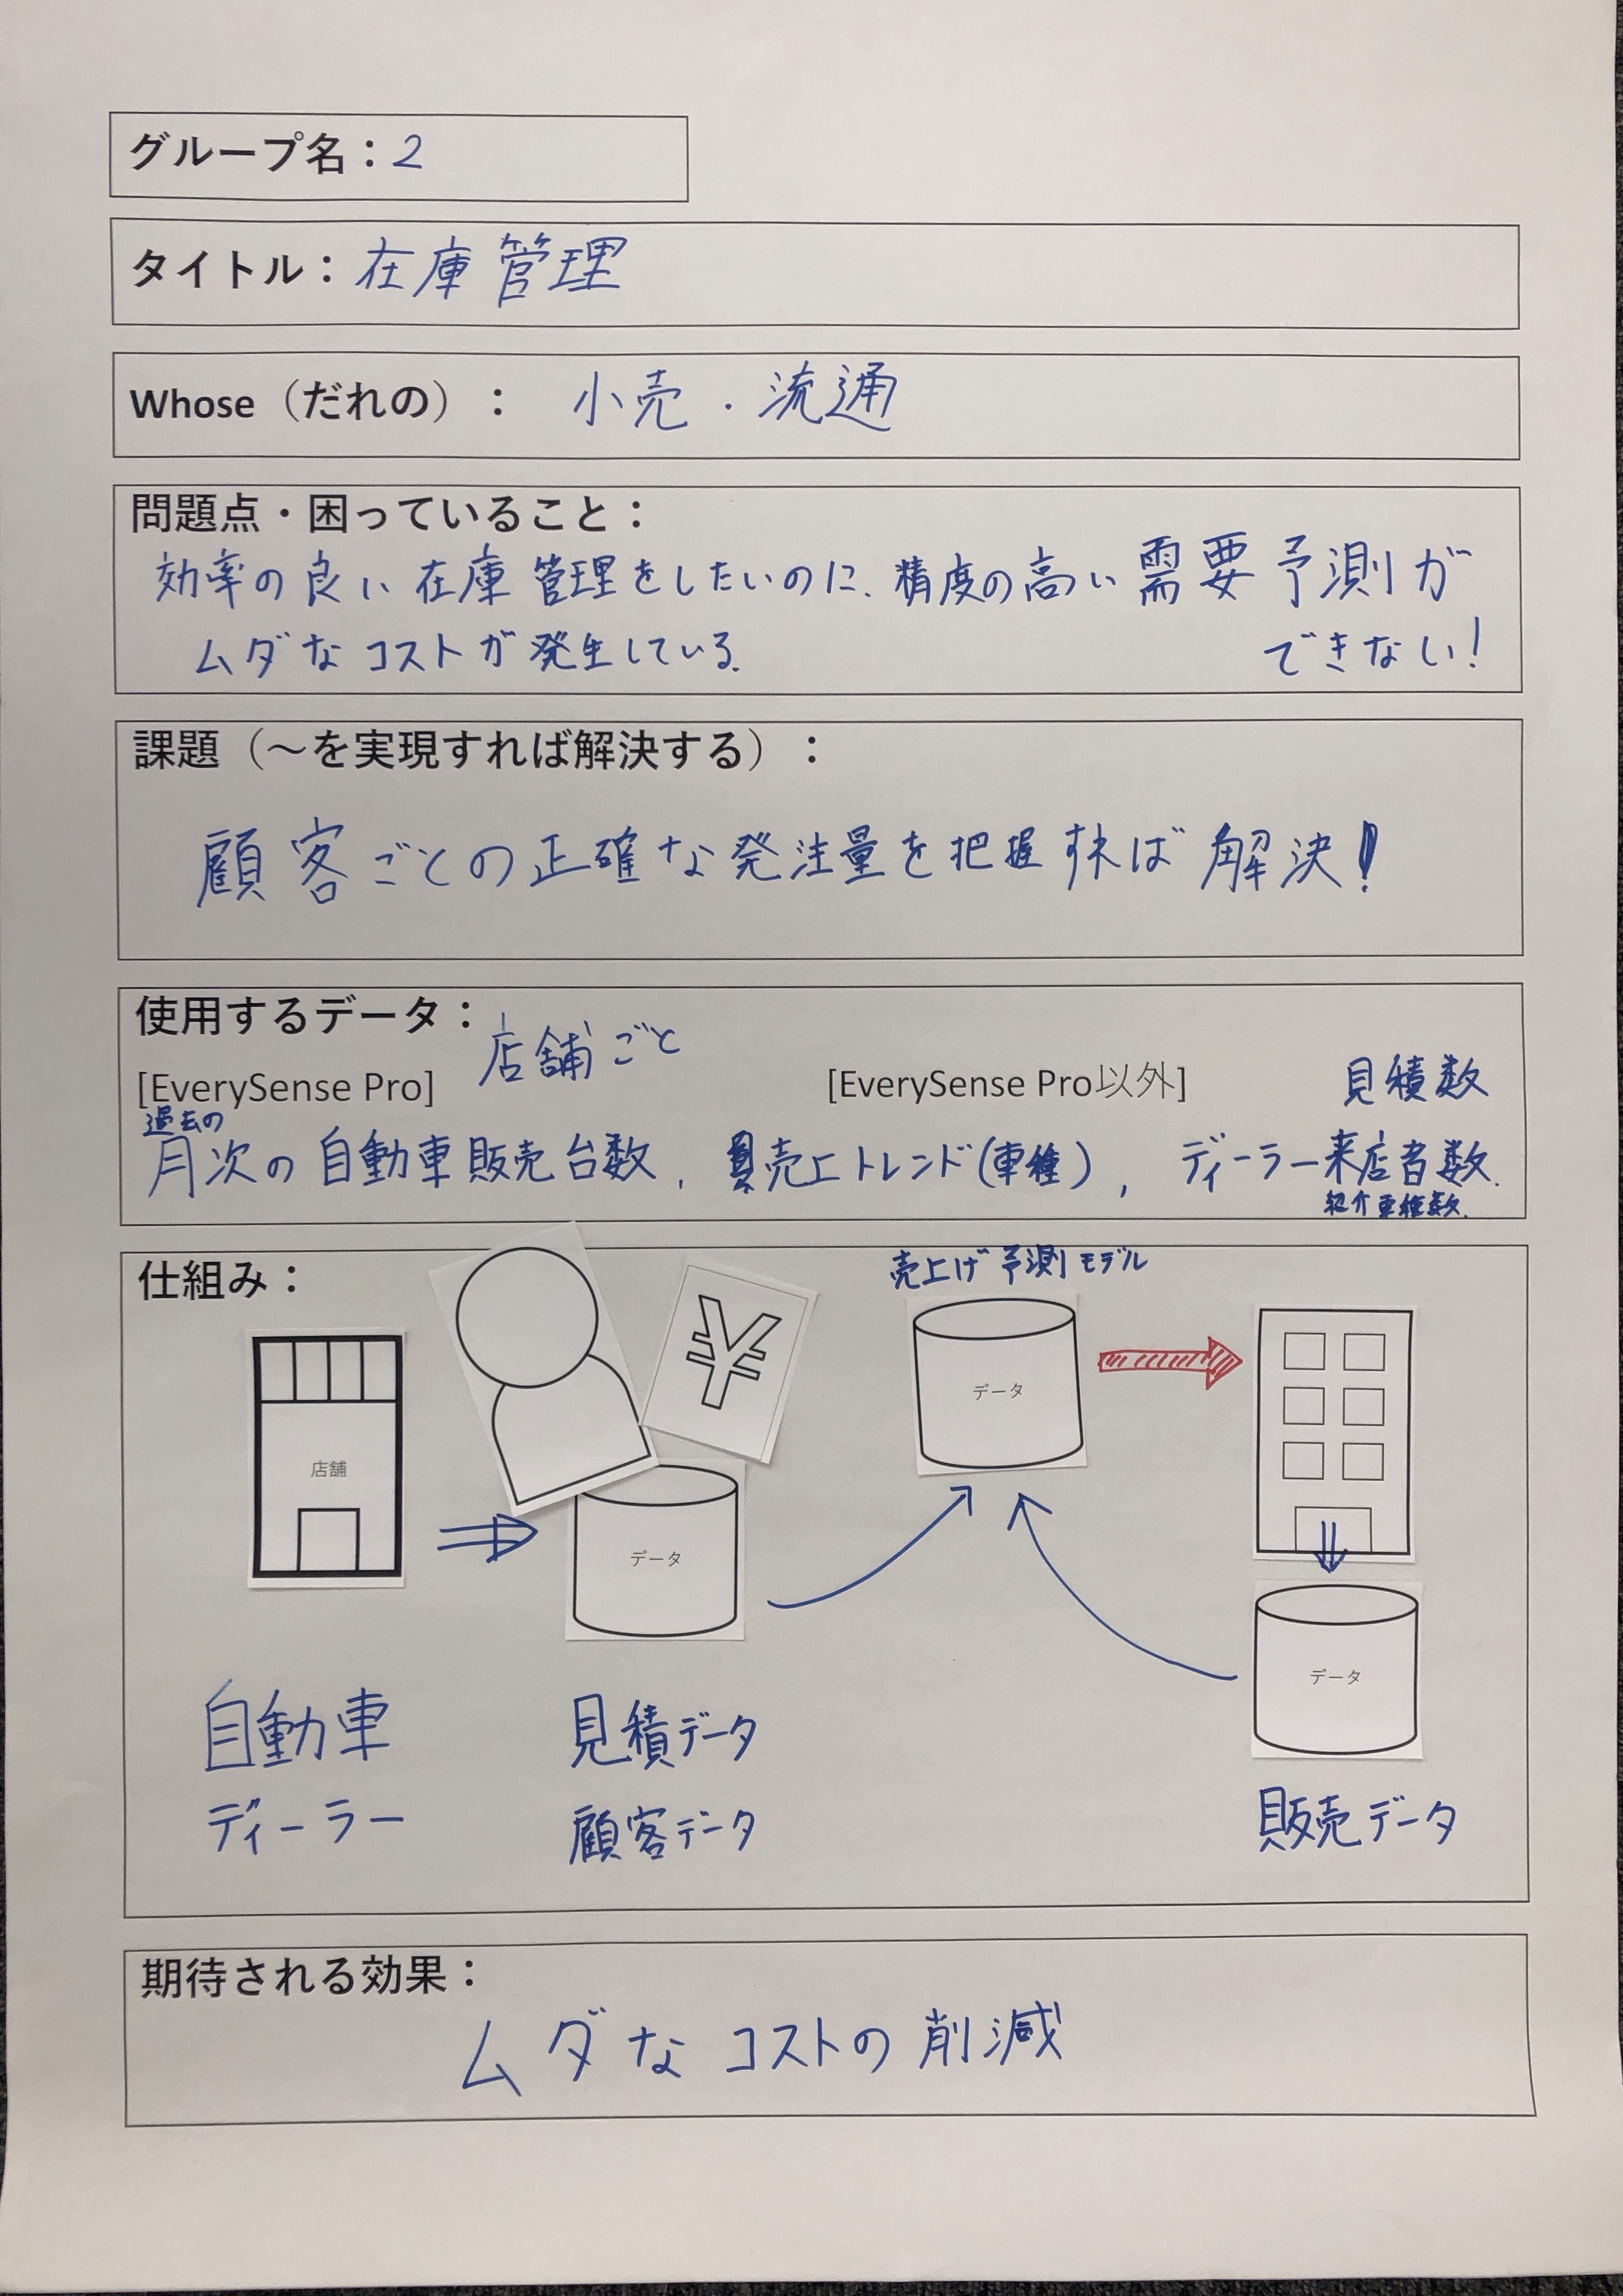 グループ名：2
タイトル：在庫管理
Whose（だれの）： 小売・流通
問題点・困っていること：
効率の良い在庫管理をしたいのに、精度の高い需要予測が
できない！
ムダなコストが発生している。
課題（～を実現すれば解決する）：
顧客ごとの正確な発注量を把握すれば解決！
使用するデータ：
店舗ごと
[EverySense Pro]
[EverySense Pro以外]
見積数
過去の
月次の自動車販売台数、売上トレンド（車種）、ディーラー来店者数、
紹介車種数、
仕組み：
売上げ予測モデル
¥
データ
店舗
データ
データ
自動車
ディーラー
見積データ
顧客データ
販売データ
期待される効果：
ムダなコストの削減